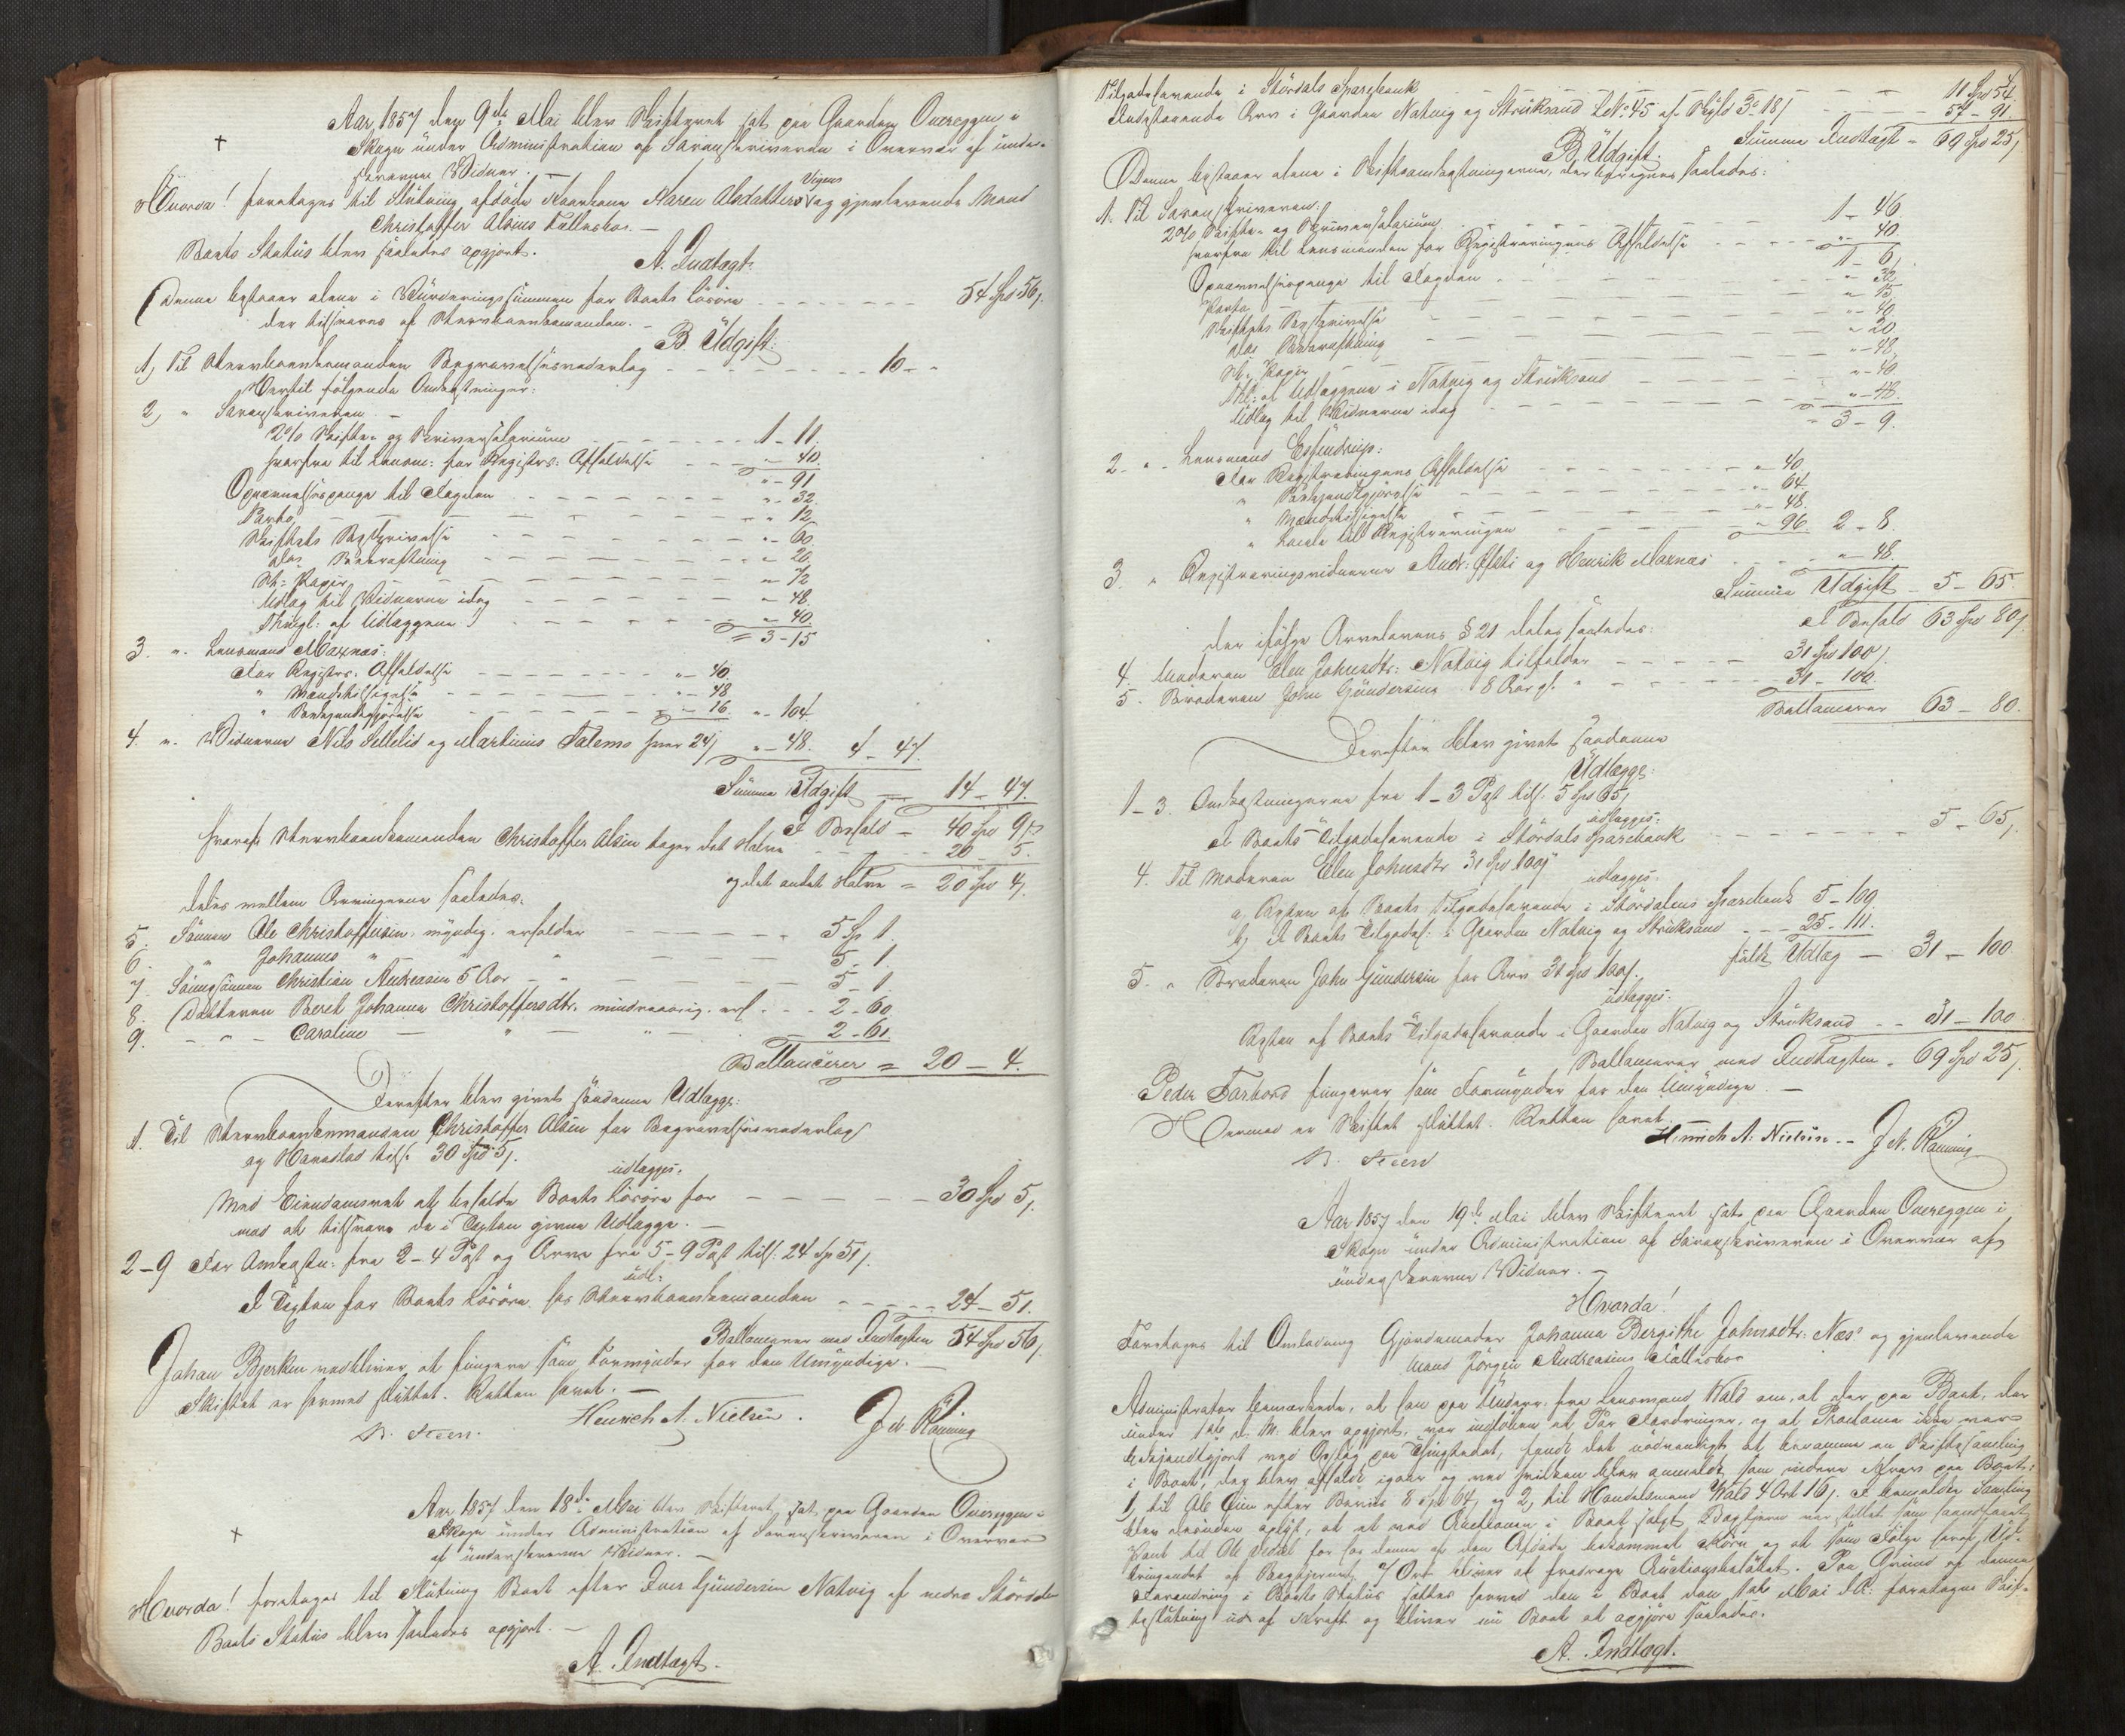 Aar 1857 den 9de Mai blev Skifteret sat paa Gaarden Overeggen i
Skogn under Administration af Sorenskriveren i Overvær af under-
skrevne Vidner. –
Hvorda! foretages til Slutning afdøde Kaarkone Karen Olsdatters Vigens og gjenlevende Mand
Christoffer Olsins Fællesbo. –
Boets Status blev saaledes opgjort.
A. Indtægt:
Denne bestaaer alene i Vurderingssummen for Boets Løsøre - - - 54 Spd 56 /.
der tilsvares af Stervboenkemanden. –
B. Udgift:
1, Til Stervboenkemanden Begravelsesvederlag - - - 10 - "
Hertil følgende Omkostninger:
2, " Sorenskriveren –
2% Skifte- og Skriversalarium - - - 1 - 11.
hvorfra til Lensm: for Registr: Afholdelse - - - " - 40.
" - 91
Opnævnelsespenge til Fogden - - - " - 32.
Porto - - - " 12
Skiftets Beskrivelse - - - " - 60
Do Bekræftning - - - " - 20
St: Papir - - - " - 72
Udlag til Vidnerne idag - - - " - 48.
Thingl: af Udlæggene - - - " - 40.
= 3 - 15
3. " Lensmand Maxnæs:
For Registr: Afholdelse - - - " - 40.
" Mændstilsigelse - - - " - 48
" Bekjendtgjørelse - - - " - 16. " - 104
4. " Vidnerne Nils Tillelid og Martinus Salemo hver 24 / " - 48. 4 - 47.
Summa Udgift — 14 - 47.
I Behold — 40 Spd 9 /
hvoraf Stervboenkemanden Christoffer Olsin tager det Halve - - 20 - 5.
og det andet Halve = 20 Spd 4 /.
deles mellem Arvingerne saaledes:
5. Sønnen Ole Christoffersin, myndig, erholder - - - 5 Sp 1.
6. " Johannes " " - - - 5 - 1.
7. Sønnesønnen Christian Andreasin 5 Aar - " - - - 5 - 1
8. Datteren Beret Johanna Christoffersdtr. mindreaarig. erh. - - 2 - 60
9. - - - Caroline — " — " — - - 2 - 61
Ballancerer = 20 — 4.
Derefter blev givet saadanne Udlægge:
1. Til Stervboenkemanden Christoffer Olsin for Begravelsesvederlag
og Hovedlod tils. 30 Spd 5 /.
udlægges:
Med Eiendomsret at beholde Boets Løsøre for - - - 30 Spd 5 /.
mod at tilsvare de i Texten givne Udlægge. –
2–9 For Omkostn: fra 2–4 Post og Arve fra 5–9 Post tils: 24 Sp 51 /.
udl:
I Texten for Boets Løsøre hos Stervboenkemanden - - - 24 - 51.
Ballancerer med Indtægten 54 Spd 56 /.
Johan Bjerken vedbliver at fungere som Formynder for den Umyndige. –
Skiftet er hermed sluttet. Retten hævet. –
B. Steen. Henrich A. Nielsen. J N Rønning
Aar 1857 den 18de Mai blev Skifteret sat paa Gaarden Overeggen i
Skogn under Administration af Sorenskriveren i Overvær
af underskrevne Vidner. –
Hvorda! foretages til Slutning Boet efter Iver Gundersin Natvig af nedre Stördalen
Boets Status blev saaledes opgjort. –
A. Indtægt.
Tilgodehavende i Stördals Sparebank - - - 11 Spd 54
Indestaaende Arv i Gaarden Natvig og Struksand L No 45 af Skyld 3o 18 / - - - 57 - 91
Summa Indtægt = 69 Spd 25 /
B. Udgift.
Denne bestaaer alene i Skifteomkostningerne, der beregnes saaledes:
1. Til Sorenskriveren:
2% Skifte- og Skriversalarium - - - 1 - 46.
hvorfra til Lensmanden for Registreringens Afholdelse - - - " - 40.
1 - 6
Opnævnelsespenge til Fogden - - - " - 32
Porto - - - " 15
Skiftets Beskrivelse - - - " - 40
Dos Bekræftning - - - " 20
St: Papir - - - " - 48
Thl: af Udlæggene i Natvig og Struksand - - - " - 40
Udlag til Vidnerne idag - - - " - 48.
" 3 - 9.
2. " Lensmand Essendrup:
For Registreringens Afholdelse - - - " - 40.
" Bekjendtgjørelse - - - " - 64.
" Mændstilsigelse - - - " - 48.
" Lokale til Registreringen - - - " 96. 2 - 8.
3. " Registreringsvidnerne Andr: Øfsti og Henrik Maxnæs - - " - 48.
Summa Udgift - 5 - 65.
I Behold 63 Spd 80 /.
der ifølge Arvelovens § 21 deles saaledes:
4. Moderen Elen Johnsdtr: Natvig tilfalder - - - 31 Spd 100 /.
5. Broderen John Gundersin 8 Aar gl. " - - - 31 - 100.
Ballancerer 63 - 80.
Derefter blev givet saadanne
Udlægge:
1–3. Omkostningerne fra 1–3 Post tils. 5 Spd 65 /
udlægges:
I Boets Tilgodehavende i Stördals Sparebank - - - 5 - 65 /.
4. Til Moderen Elen Johnsdtr 31 Spd 100 /
udlægges.
a, Resten af Boets Tilgodehavende i Stördalens Sparebank 5 - 109
b, I Boets Tilgodeh: i Gaarden Natvig og Struksand - - - 25 - 111.
fuldt Udlæg — 31 — 100
5. " Broderen John Gundersin for Arv 31 Spd 100 /.
udlægges:
Resten af Boets Tilgodehavende i Gaarden Natvig og Struksand - - 31 - 100
Ballancerer med Indtægten - 69 Spd 25 /.
Peder Forbord fungerer som Formynder for den Umyndige. –
Hermed er Skiftet sluttet. Retten hævet.
B. Steen Henrich A. Nielsen.– J N. Rønning
Aar 1857 den 19de Mai blev Skifteret sat paa Gaarden Overeggen i
Skogn under Administration af Sorenskriveren i Overvær af
undeg skrevne Vidner. –
Hvorda!
Foretages til Omladning Gjordemoder Johanna Bergithe Johnsdtr: Næss og gjenlevende
Mand Jörgen Andreasins Fællesbo
Administrator bemærkede, at han paa Underr: fra Lensmand Wold om, at der paa Boet, der
under 1ste d. M. blev opgjort, var indløben et Par Fordringer, og at Proclama ikke var
bekjendtgjort ved Opslag paa Thingstedet, fandt det nødvendigt at beramme en Skiftesamling
i Boet, der blev afholdt igaar og ved hvilken blev anmeldt som videre Krav paa Boet:
1, til Ole Eim efter Beviis 8 Spd 64 / og 2, til Handelsmand Wold 4 Ort 16 /. I bemeldte Samling
blev desuden oplyst, at et ved Auctionen i Boet solgt var stillet som haandfaaet
Pant til Ole for hos denne af den Afdøde bekommet Korn og at som Følge heraf Ud-
bringendet af 7 Ort bliver at fradrage Auctionsbeløbet. Paa Grund af denne
Forandring i Boets Status sættes herved den i Boet den 1ste Mai d. A. foretagne Skif-
teslutning ud af Kraft og bliver nu Boet at opgjøre saaledes.
A. Indtægt.